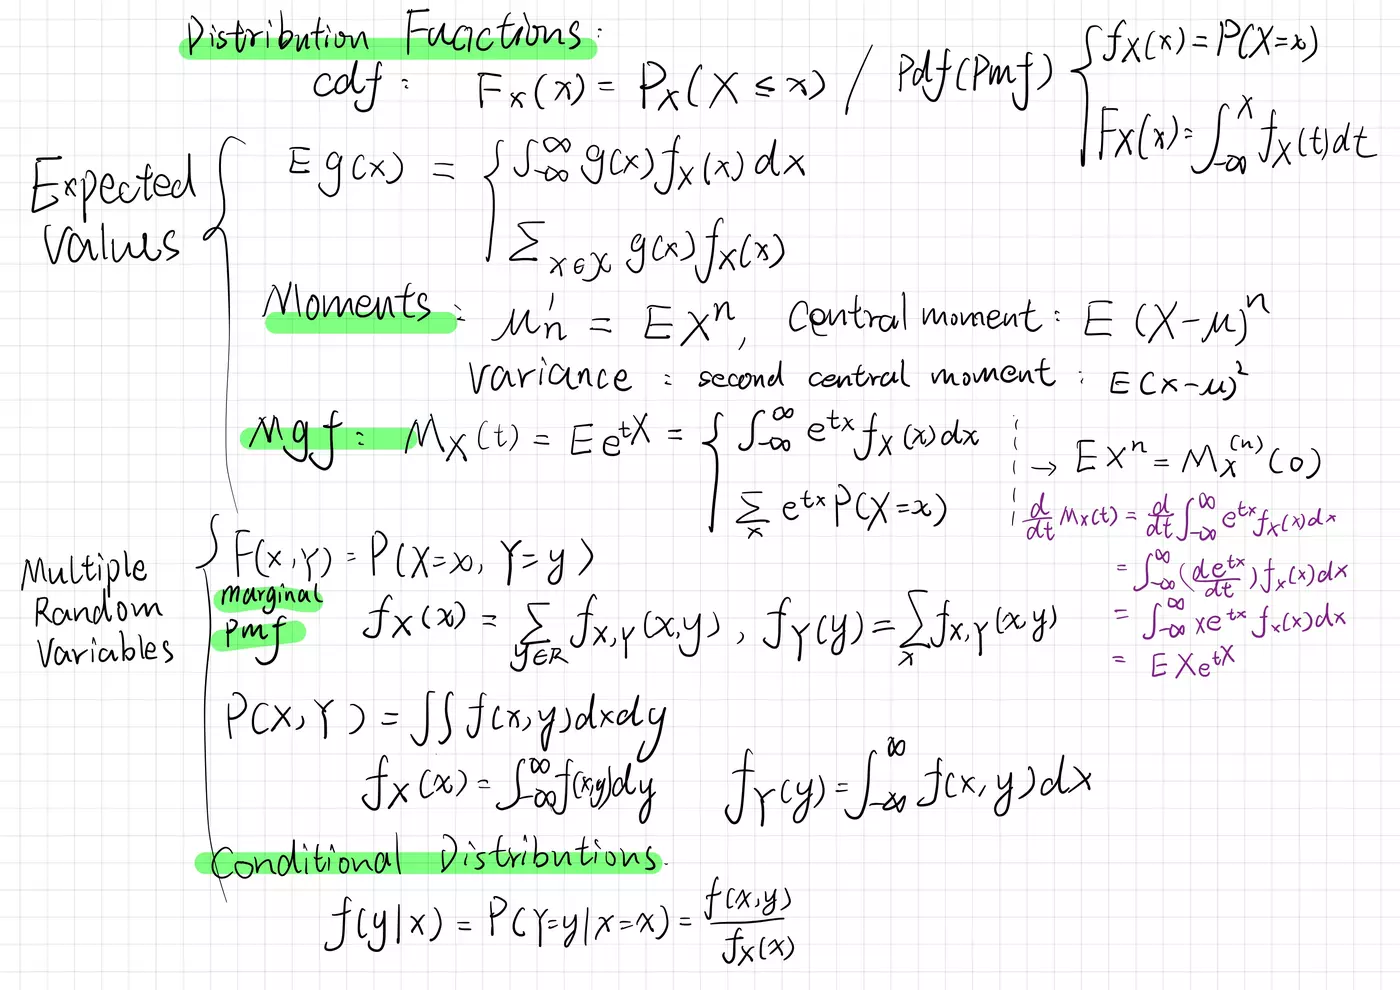 Distribution Functions:
cdf: F_X(x) = P_X(X ≤ x) / Pdf(Pmf) { f_X(x) = P(X=x)
F_X(x) = ∫_{-∞}^{x} f_X(t)dt
Expected Values { E g(x) = { ∫_{-∞}^{∞} g(x) f_X(x) dx
∑_{x∈𝒳} g(x) f_X(x)
Moments: μ'_n = E X^n, Central moment: E (X-μ)^n
Variance: second central moment: E(X-μ)^2
Mgf: M_X(t) = E e^{tX} = { ∫_{-∞}^{∞} e^{tx} f_X(x)dx
∑_x e^{tx} P(X=x)
→ E X^n = M_X^{(n)}(0)
d/dt M_X(t) = d/dt ∫_{-∞}^{∞} e^{tx} f_X(x)dx
= ∫_{-∞}^{∞} (de^{tx}/dt) f_X(x)dx
= ∫_{-∞}^{∞} xe^{tx} f_X(x)dx
= E Xe^{tX}
Multiple Random Variables { F(x,Y) = P(X=x, Y=y)
marginal pmf f_X(x) = ∑_{y∈R} f_{X,Y}(x,y), f_Y(y) = ∑_x f_{X,Y}(x y)
P(X,Y) = ∫∫ f(x,y)dxdy
f_X(x) = ∫_{-∞}^{∞} f(x,y)dy f_Y(y) = ∫_{-∞}^{∞} f(x,y)dx
Conditional Distributions.
f(y|x) = P(Y=y|X=x) = f(x,y)/f_X(x)